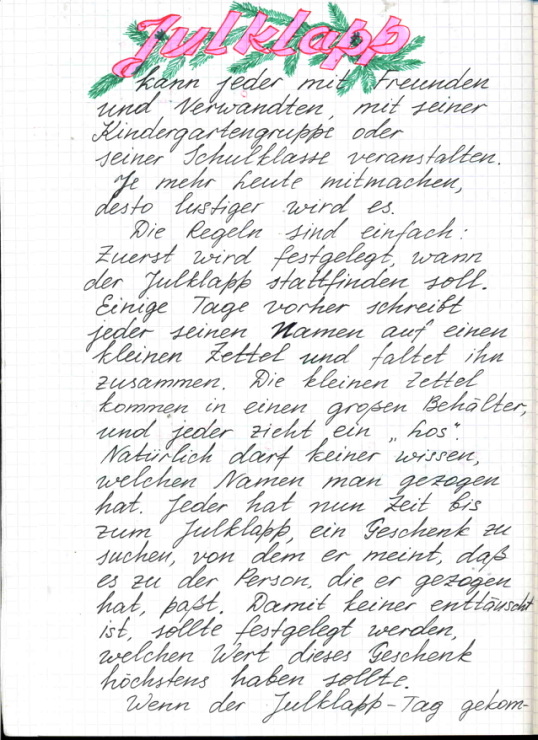 Julklapp
kann jeder mit Freunden
und Verwandten, mit seiner
Kindergartengruppe oder
seiner Schulklasse veranstalten.
Je mehr Leute mitmachen,
desto lustiger wird es.
Die Regeln sind einfach:
Zuerst wird festgelegt, wann
der Julklapp stattfinden soll.
Einige Tage vorher schreibt
jeder seinen Namen auf einen
kleinen Zettel und faltet ihn
zusammen. Die kleinen Zettel
kommen in einen großen Behälter,
und jeder zieht ein „Los".
Natürlich darf keiner wissen,
welchen Namen man gezogen
hat. Jeder hat nun Zeit bis
zum Julklapp, ein Geschenk zu
suchen, von dem er meint, daß
es zu der Person, die er gezogen
hat, paßt. Damit keiner enttäuscht
ist, sollte festgelegt werden,
welchen Wert dieses Geschenk
höchstens haben sollte.
Wenn der Julklapp-Tag gekom-